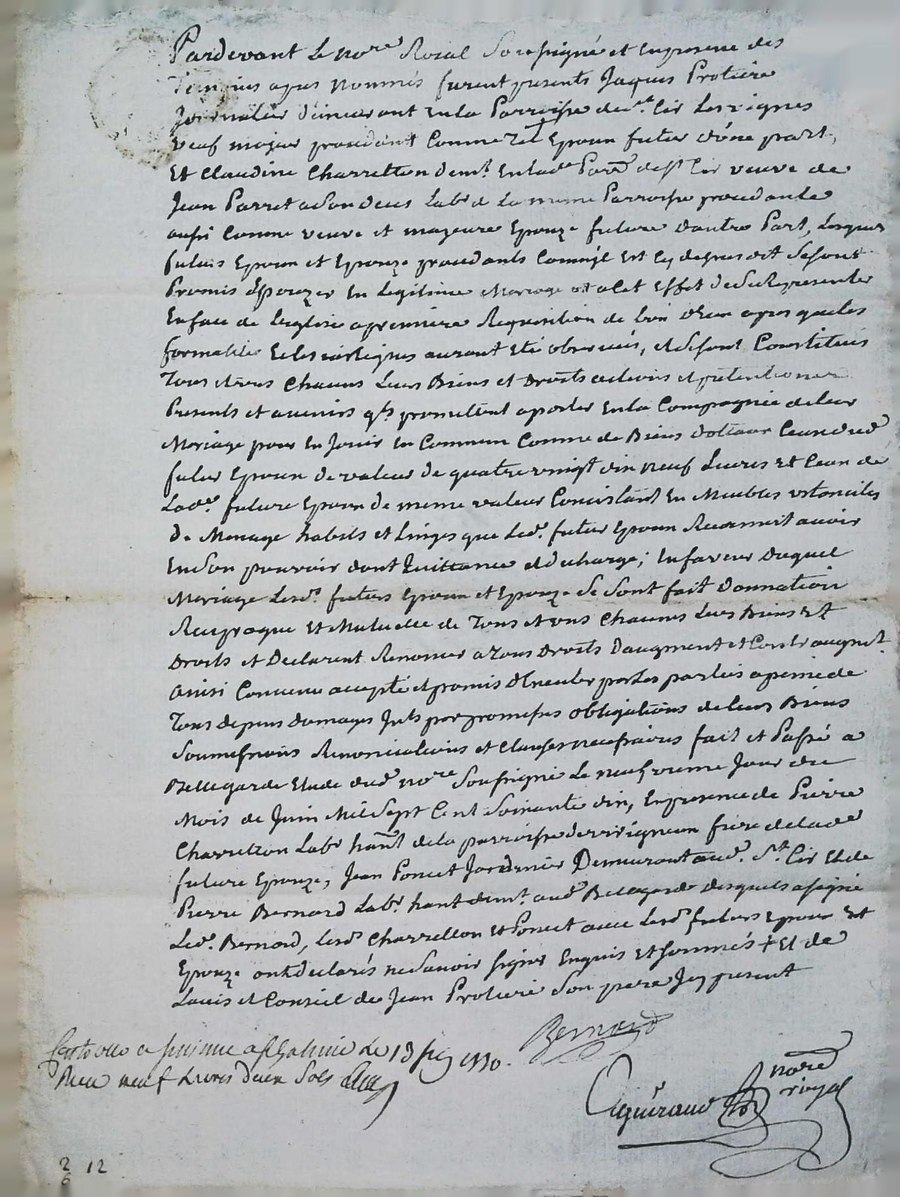 Pardevant Le no.re Roial Soussigné et En presence des
Temoins apres nommés furent presents Jaques Protiere
Journalier demeurant En la Parroisse de St. Cir Les vignes
veuf majeur procedant Comme tel Epoux futur d'une part,
Et Claudine Charretton dem.t En lad.e Par.se de St Cir veuve de
Jean Parret a Son deces Lab.r de La meme Parroisse procedante
aussi Comme veuve et majeure Epouze future dautre Part, Lesquels
futurs Epoux et Epouze procedants Comme Est Cy dessus dit Se sont
Promis Epouzer En Legitime Mariage et a Cet Effet de Se Representer
En face de Leglise a premiere Requisition de Lun deux apres que les
formalités Eclesiastiques auront Eté observées, et Se sont Constitués
Tous et uns Chacuns Leurs Biens et Droits actions et pretentions
Presents et avenirs qu'ils promettent aporter En La Compagnie de leur
Mariage pour En Jouir En Commun Comme de Biens dotaux Ceux dud.
futur Epoux de valeur de quatre vingt dix neuf Livres Et Ceux de
Lad.e future Epouze de meme valeur Consistant En Meubles Ustenciles
de Menage habits et Linges que Led. futur Epoux Reconnoit avoir
En Son pouvoir dont Quittance et decharge; En faveur Duquel
Mariage Lesd.s futurs Epoux et Epouze Se Sont fait Donnation
Reciproque Et Mutuelle de Tous et uns Chacuns Leurs Biens Et
Droits et Declarent Renoncer a Tous Droits Daugment et Contr'augment
Ainsi Convenu accepté et promis Executer par Les parties a peine de
Tous depens Domages Ints par promesses obligations de leurs Biens
Soumissions Renonciations et Clauses necessaires fait et Passé a
Bellegarde Etude dud. no.re Soussigné Le neufvieme Jour du
Mois de Juin Mil Sept Cent Soixante dix, En presence de Pierre
Charretton Lab.r hant de la parroisse de rivas frere de lad.e
future Epouze, Jean Poncet Jardinier Demeurant aud. St. Cir Et de
Pierre Bernard Lab.r hant dem.t aud. Bellegarde desquels a signé
Led. Bernard, Lesd. Charretton Et Poncet avec Lesd. futurs Epoux Et
Epouze ont declarés ne Savoir Signer Enquis et Sommés † Et de
Lavis et Conseil de Jean Protiere Son pere Icy present
Bernard
Controllé a le 13 juin 1770.
Reçu neuf Livres deux Sols
no.re royal
2 12
6